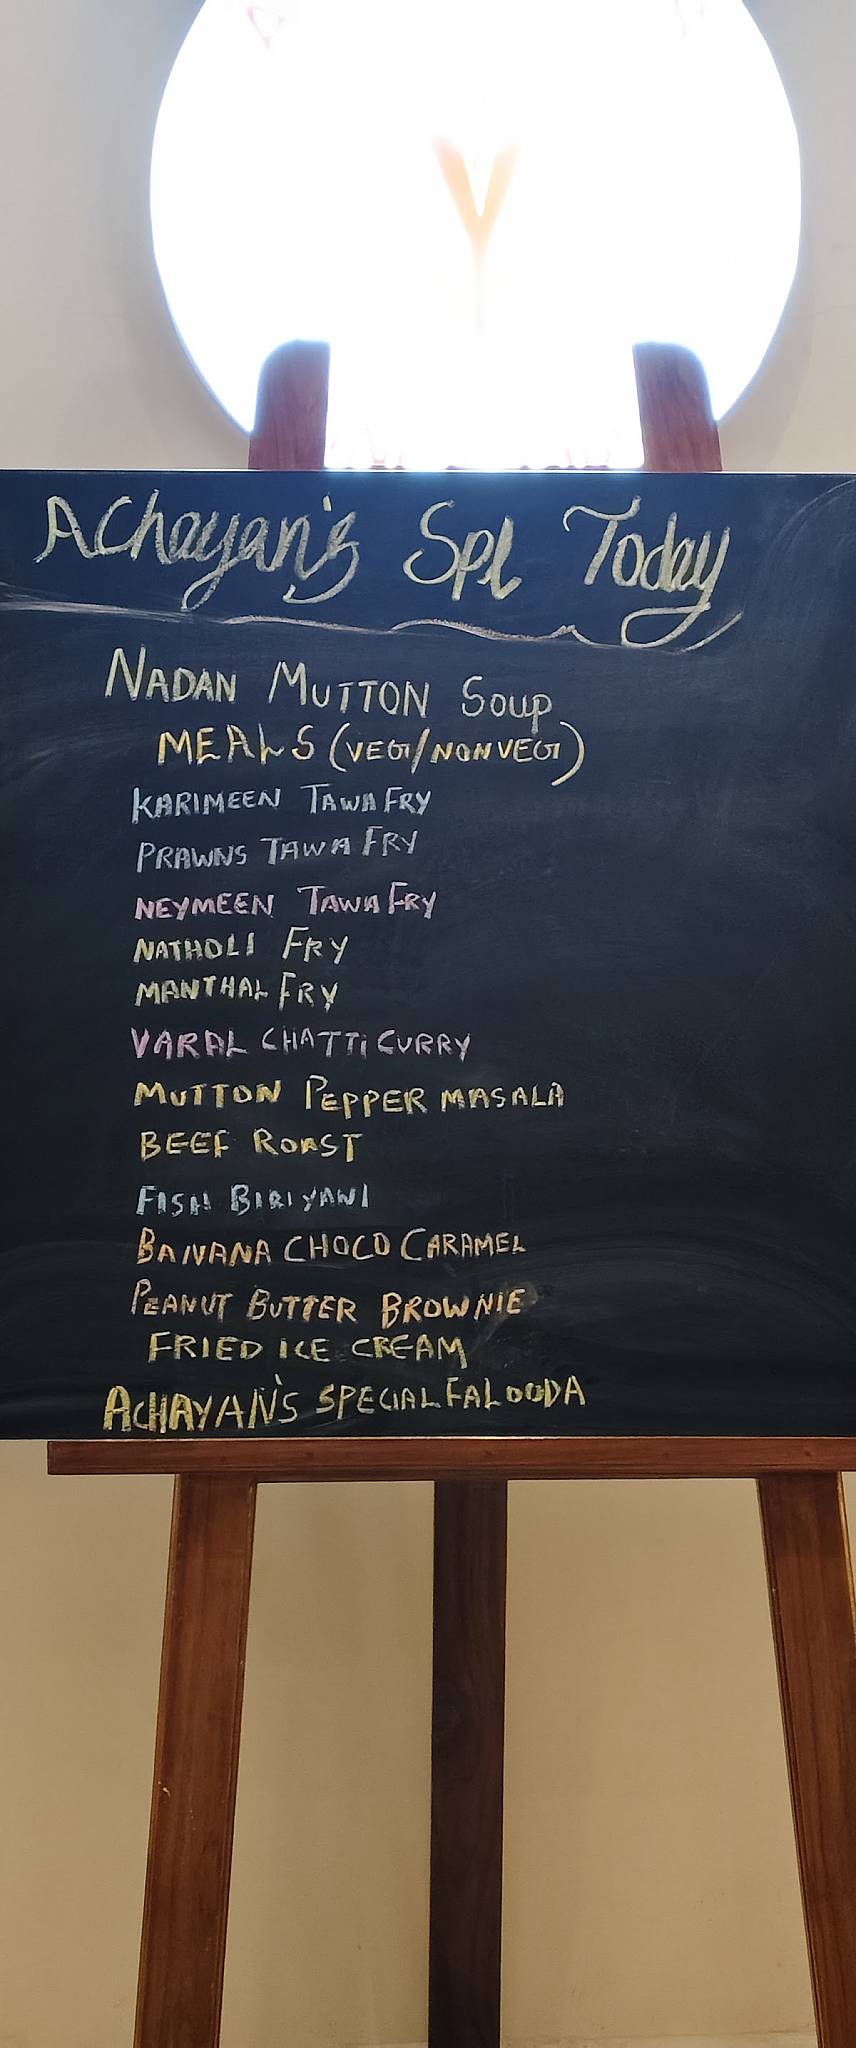 Y
Achayan's Spl Today
NADAN MUTTON SOUP
MEALS (VEG/NONVEG)
KARIMEEN TAWA FRY
PRAWNS TAWA FRY
NEYMEEN TAWA FRY
NATHOLI FRY
MANTHAL FRY
VARAL CHATTI CURRY
MUTTON PEPPER MASALA
BEEF ROAST
FISH BIRIYANI
BANANA CHOCO CARAMEL
PEANUT BUTTER BROWNIE
FRIED ICE CREAM
ACHAYAN'S SPECIAL FALOODA